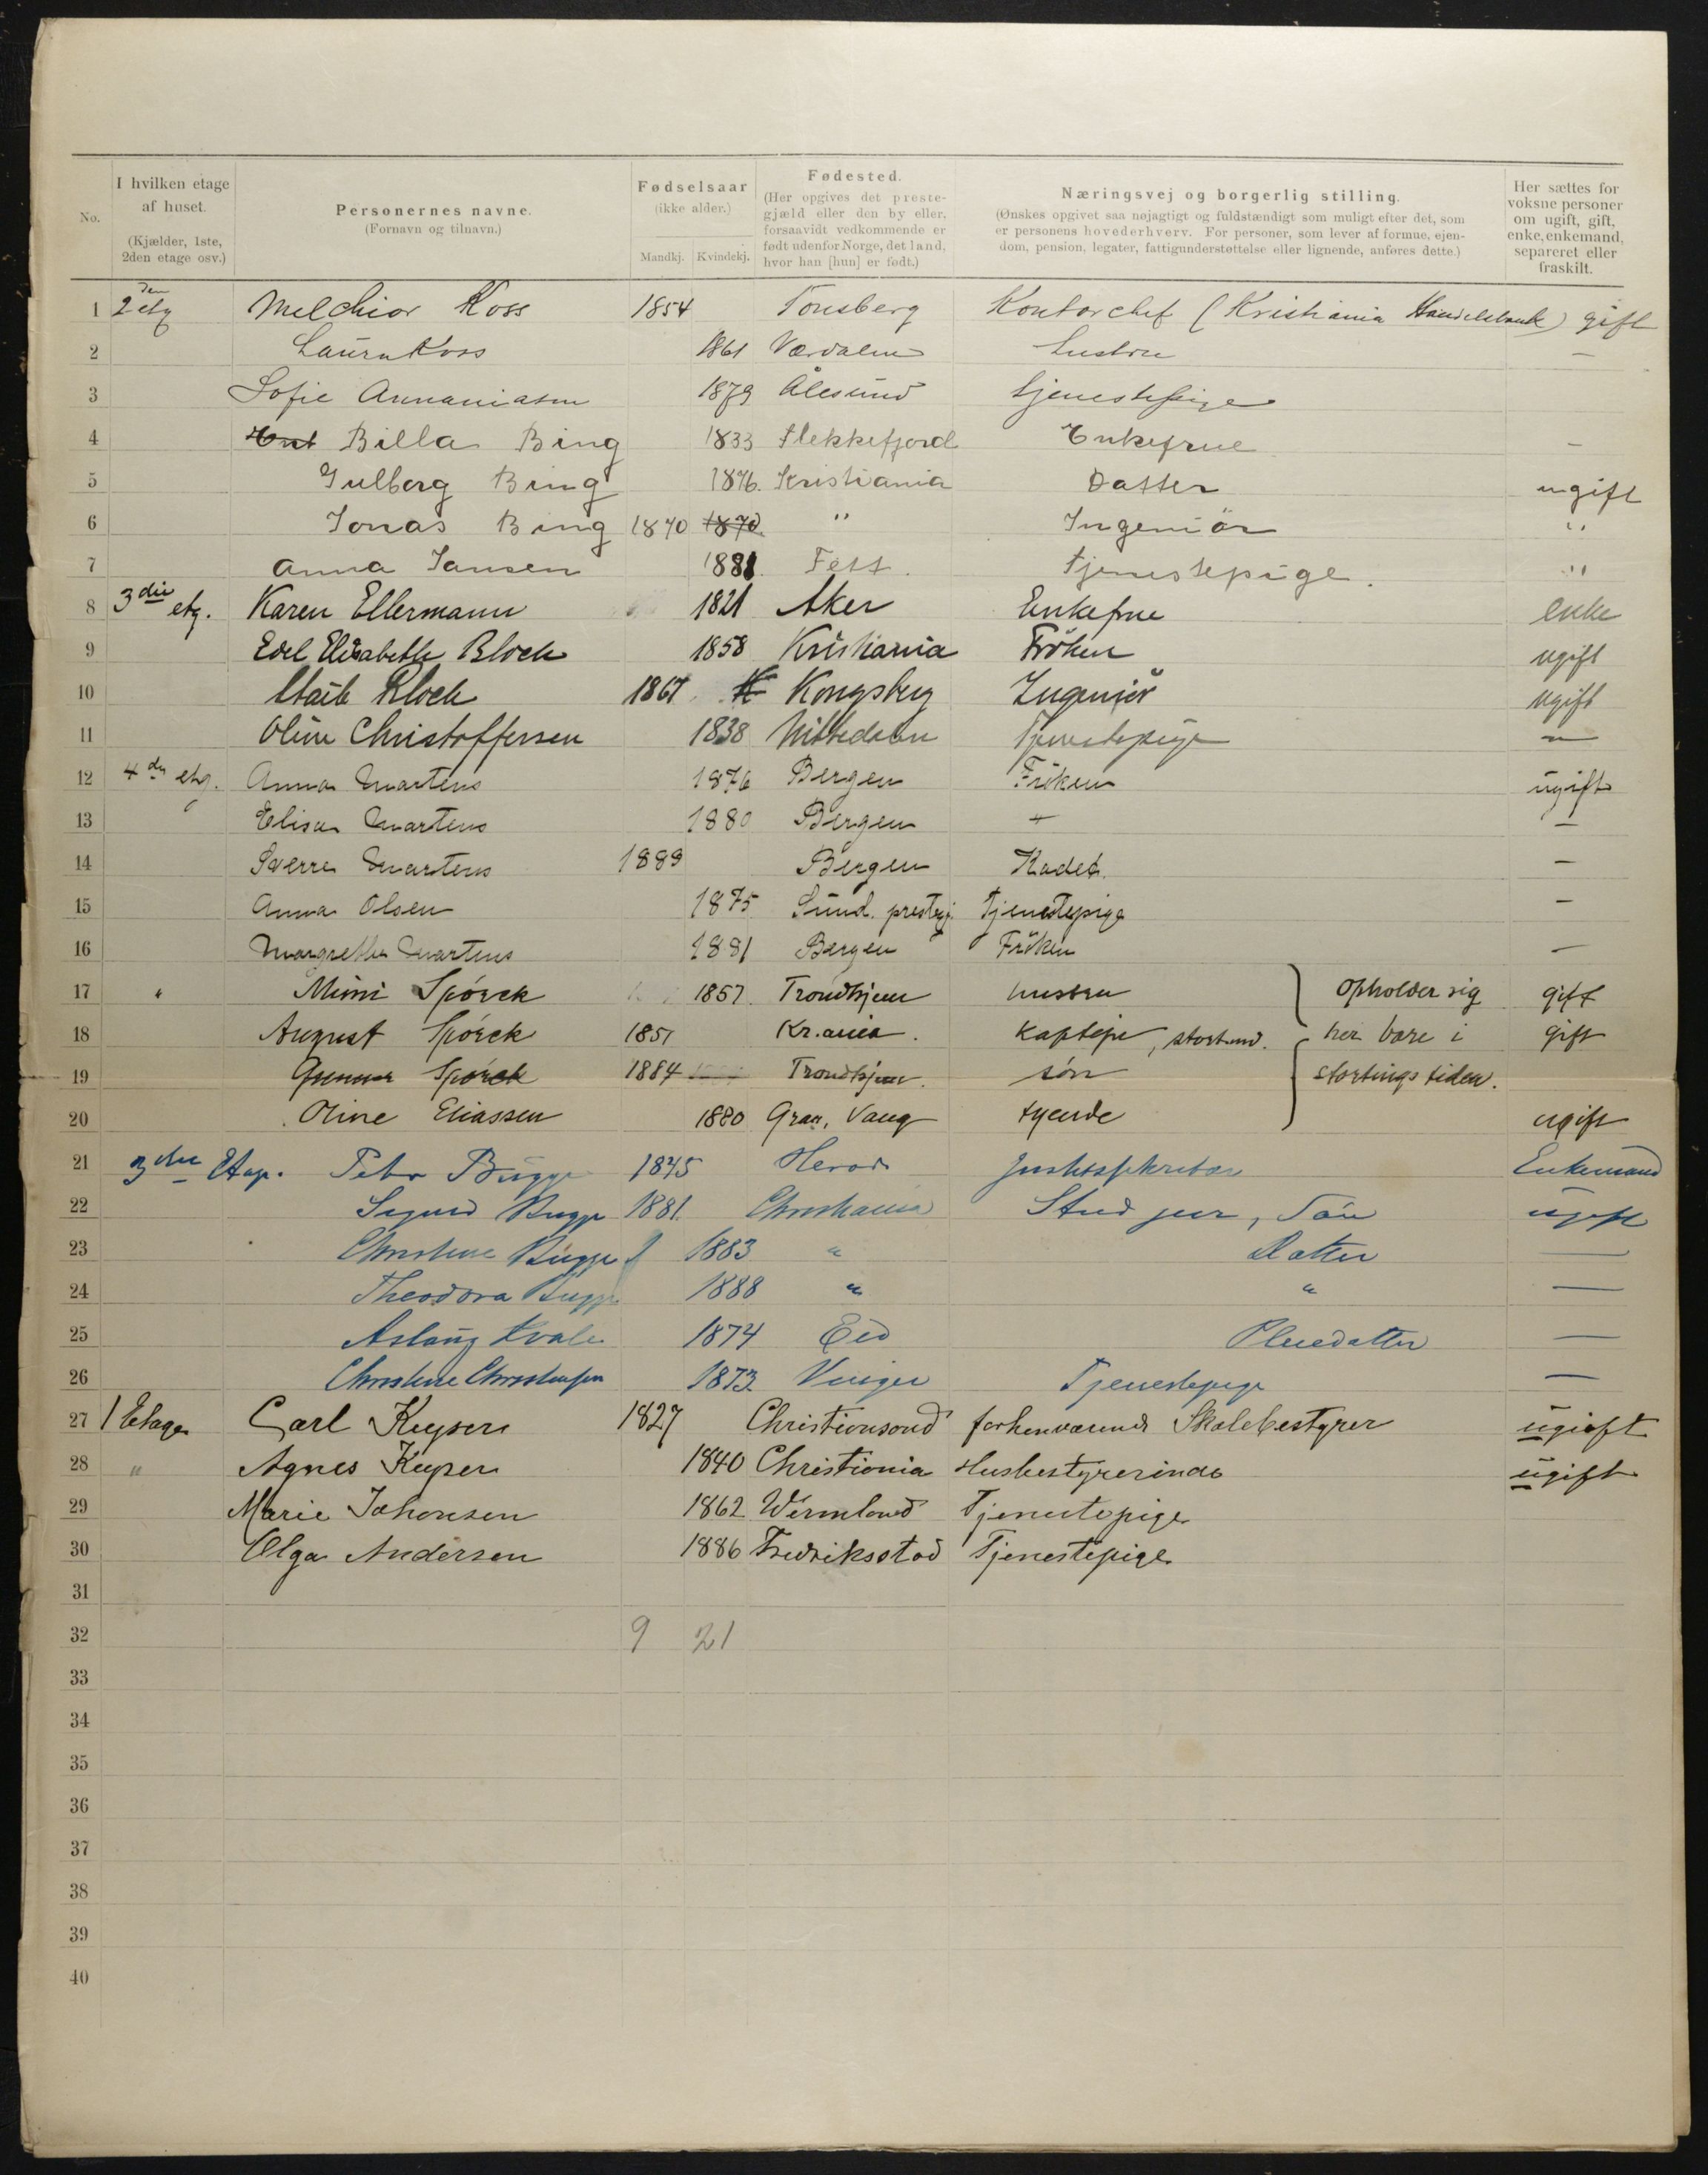 No.
I hvilken etage af huset.
(Kjælder, 1ste, 2den etage osv.)
Personernes navne.
(Fornavn og tilnavn.)
Fødselsaar
(ikke alder.)
Mandkj. Kvindekj.
Fødested.
(Her opgives det prestegjæld eller den by eller, forsaavidt vedkommende er født udenfor Norge, det land, hvor han [hun] er født.)
Næringsvej og borgerlig stilling.
(Ønskes opgivet saa nøjagtigt og fuldstændigt som muligt efter det, som er personens hovederhverv. For personer, som lever af formue, ejendom, pension, legater, fattigunderstøttelse eller lignende, anføres dette.)
Her sættes for voksne personer om ugift, gift, enke, enkemand, separeret eller fraskilt.
1 2den etg Melchior Koss 1854 Tonsberg Kontorchef (Kristiania Handelsbank) gift
2 Laura Koss 1861 Værdalen Hustru —
3 Sofie Annaniasen 1879 Ålesund tjenestepige
4 Billa Bing 1833 Flekkefjord Enkefrue —
5 Gulborg Bing 1876. Kristiania Datter ugift
6 Jonas Bing 1870 1870. " Ingeniör "
7 Anna Jansen 1881. Fett. Tjenestepige. "
8 3die etg. Karen Ellermann 1821 Aker Enkefrue enke
9 Edel Elisabeth Bloch 1858 Kristiania Fröken ugift
10 Bloch 1867 K Kongsberg Ingeniör ugift
11 Oline Christoffersen 1838 Nittedalen Tjenestepige —
12 4de etg. Anna Martens 1876 Bergen Fröken ugift
13 Elisa Martens 1880 Bergen — —
14 Sverre Martens 1889 Bergen Kadet. —
15 Anna Olsen 1875 Sund. prestegj. Tjenestepige —
16 Margrethe Martens 1881 Bergen Fröken —
17 " Mimi Spörck 1857. Trondhjem hustru } Opholder sig gift
18 August Spörck 1851 Kr.ania. Kaptejn, stortmd. her bare i gift
19 Gunnar Spörck 1884 Trondhjem. sön stortingstiden.
20 Oline Eliassen 1880 Gran, Vang tyende ugift
21 3die Etage. Peter Bugge 1845 Justitssekretær Enkemand
22 Sigurd Bugge 1881. Christiania Stud jur, Sön ugift
23 Christine Bugge 1883 " Datter —
24 Theodora Bugge 1888 " " —
25 Aslaug Kvale 1874 Eid Pleiedatter —
26 Christine Christensen 1873. Vinger Tjenestepige —
27 1 Etage Carl Keyser 1827 Christiansand forhenværende Skolebestyrer ugift
28 " Agnes Keyser 1840 Christiania Husbestyrerinde ugift
29 Marie Johansen 1862 Wermland Tjenestepige
30 Olga Andersen 1886 Fredriksstad Tjenestepige
31
32 9 21
33
34
35
36
37
38
39
40